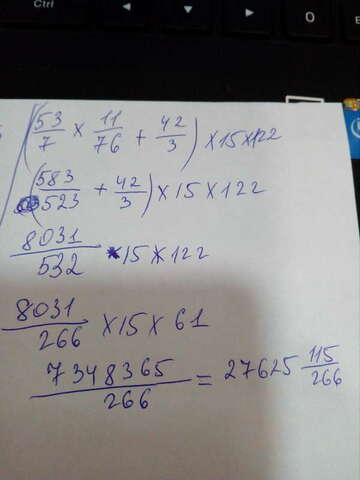 Ctrl
O
(53/7 × 11/76 + 42/3) × 15 × 122
(583/523 + 42/3) × 15 × 122
8031/532 × 15 × 122
8031/266 × 15 × 61
7348365/266 = 27625 115/266